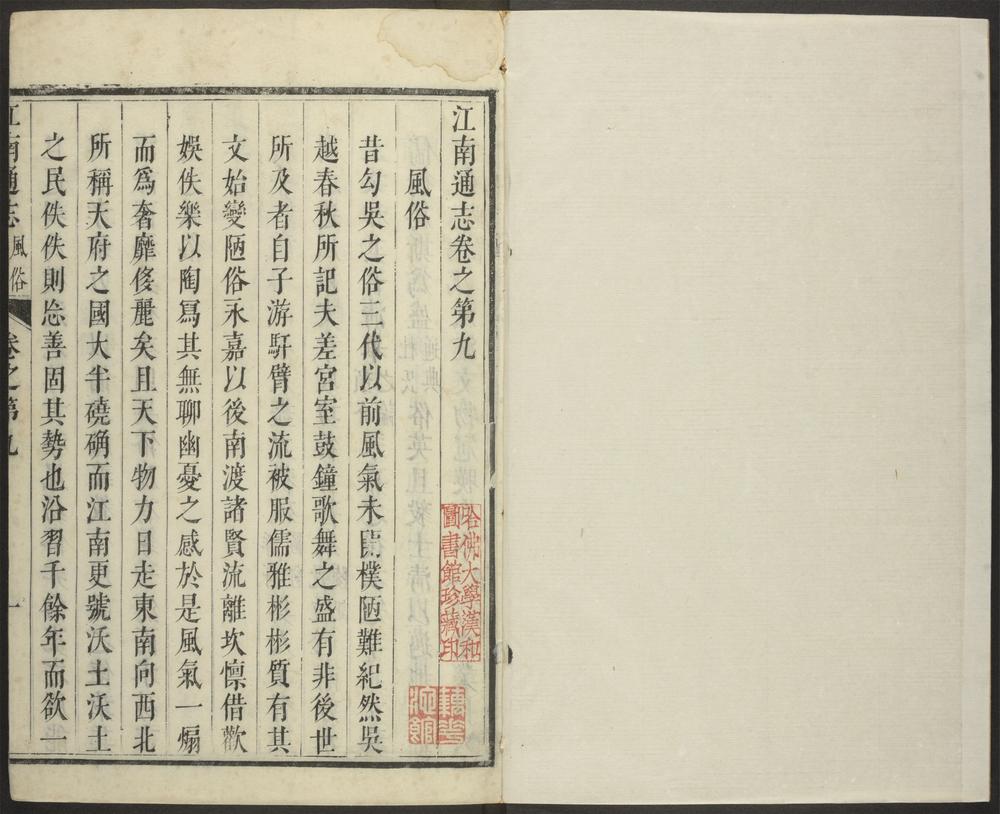 江南通志卷之第九
風俗
昔勾吳之俗三代以前風氣未開樸陋難紀然吳
越春秋所記夫差宮室鼓鐘歌舞之盛有非後世
所及者自子游馯臂之流被服儒雅彬彬質有其
文始變陋俗永嘉以後南渡諸賢流離坎懍借歡
娛佚樂以陶寫其無聊幽憂之感於是風氣一煽
而為奢靡侈麗矣且天下物力日走東南向西北
所稱天府之國大半磽确而江南更號沃土沃土
之民佚佚則忘善固其勢也沿習千餘年而欲一
江南通志 風俗 卷之第九 一
哈佛大學漢和
圖書館珍藏印